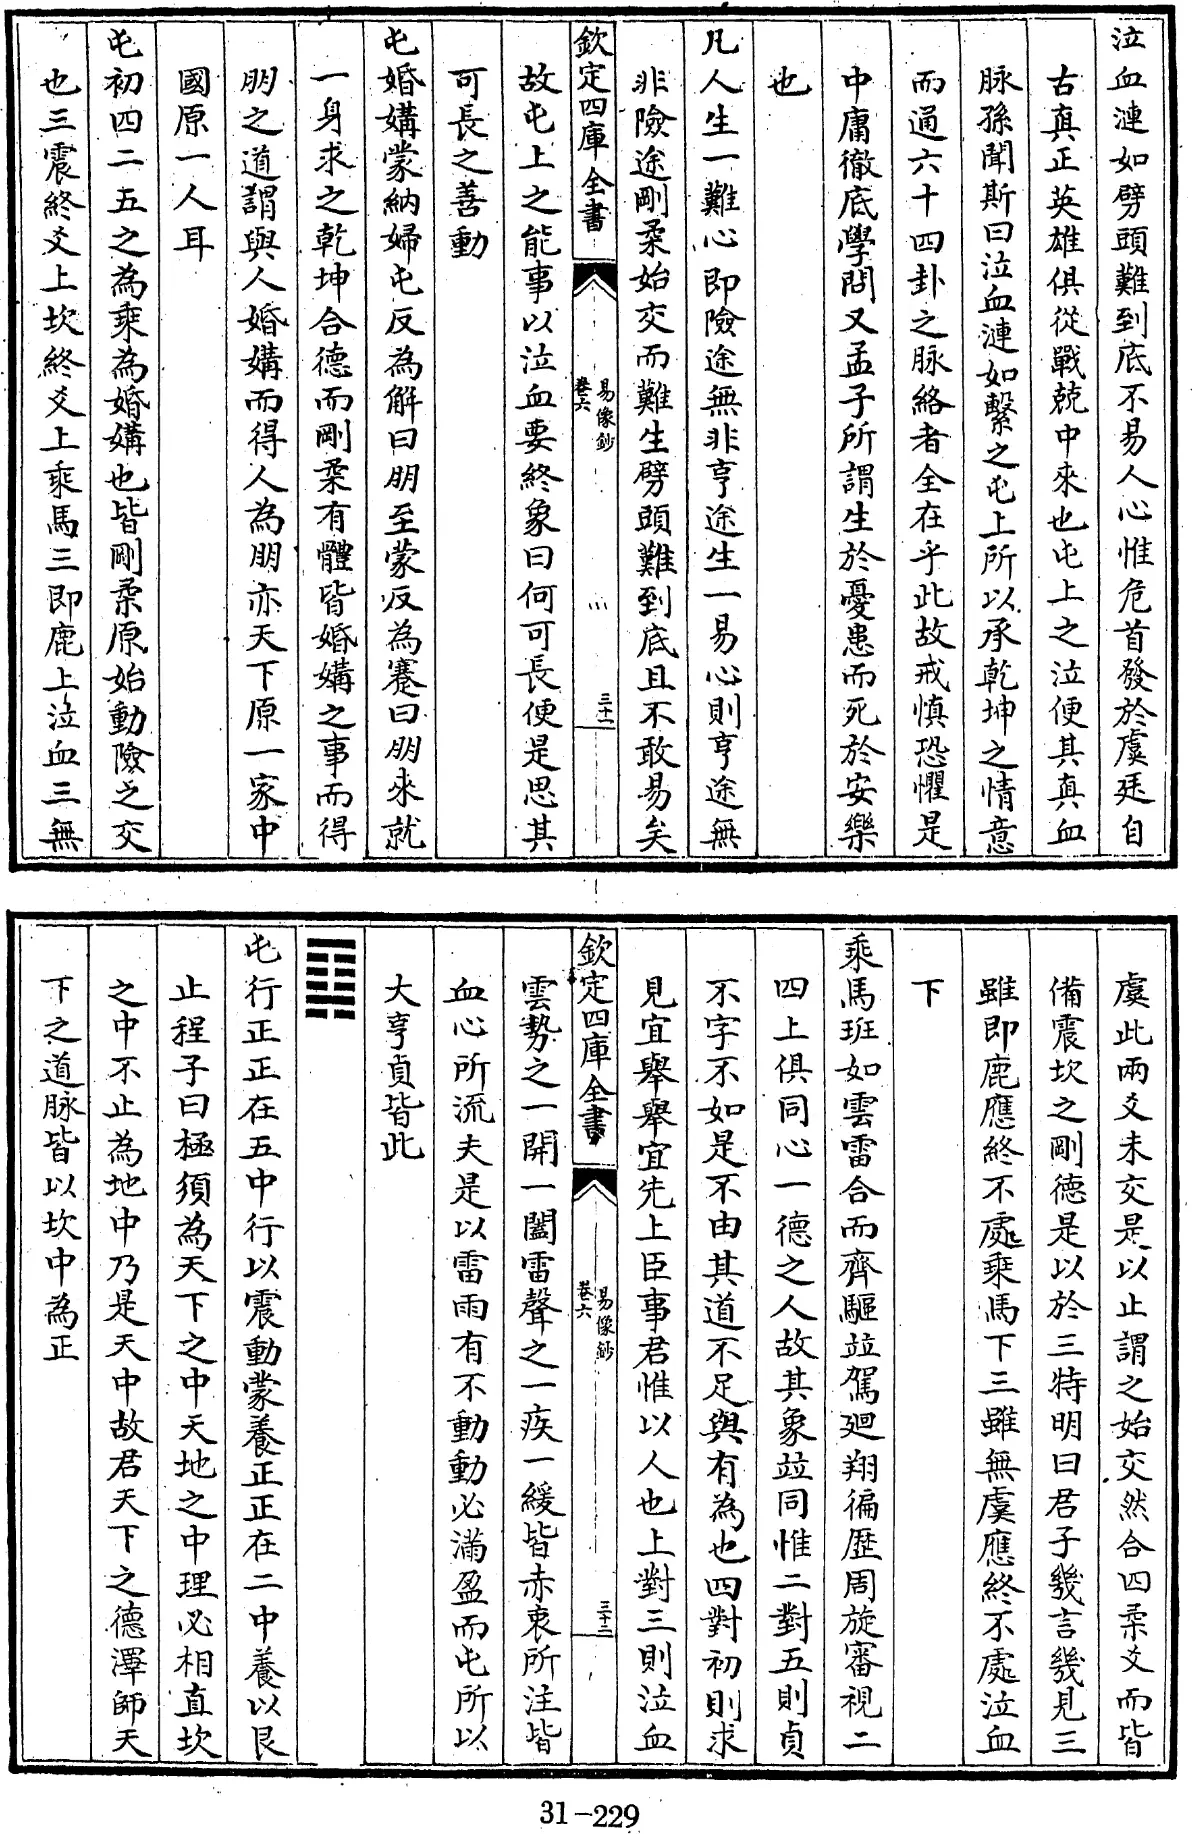 泣血漣如劈頭難到底不易人心惟危首發於虞廷自
古真正英雄俱從戰兢中來也屯上之泣便其真血
脉孫聞斯曰泣血漣如繫之屯上所以承乾坤之情意
而通六十四卦之脉絡者全在乎此故戒慎恐懼是
中庸徹底學問又孟子所謂生於憂患而死於安樂
也
凡人生一難心即險途無非亨途生一易心則亨途無
非險途剛柔始交而難生劈頭難到底且不敢易矣
欽定四庫全書
易像鈔
卷六
三十一
故屯上之能事以泣血要終象曰何可長便是思其
可長之善動
屯婚媾蒙納婦屯反為解曰朋至蒙反為蹇曰朋來就
一身求之乾坤合德而剛柔有體皆婚媾之事而得
朋之道謂與人婚媾而得人為朋亦天下原一家中
國原一人耳
屯初四二五之為乘為婚媾也皆剛柔原始動險之交
也三震終爻上坎終爻上乘馬三即鹿上泣血三無
虞此兩爻未交是以止謂之始交然合四柔爻而皆
備震坎之剛德是以於三特明曰君子幾言幾見三
雖即鹿應終不處乘馬下三雖無虞應終不處泣血
下
乘馬班如雲雷合而齊驅竝駕廻翔徧歷周旋審視二
四上俱同心一德之人故其象竝同惟二對五則貞
不字不如是不由其道不足與有為也四對初則求
見宜舉舉宜先上臣事君惟以人也上對三則泣血
欽定四庫全書
易像鈔
卷六
三十二
雲勢之一開一闔雷聲之一疾一緩皆赤衷所注皆
血心所流夫是以雷雨有不動動必滿盈而屯所以
大亨貞皆此
䷃
屯行正正在五中行以震動蒙養正正在二中養以艮
止程子曰極須為天下之中天地之中理必相直坎
之中不止為地中乃是天中故君天下之德澤師天
下之道脉皆以坎中為正
31-229